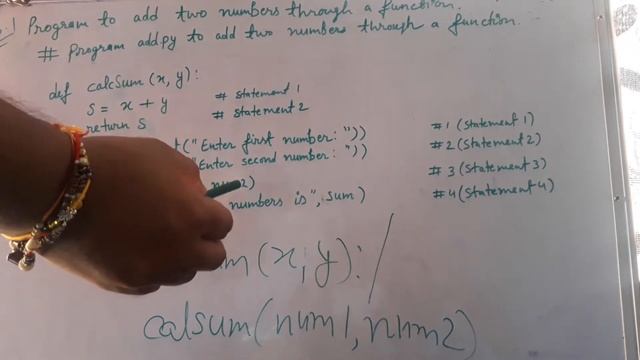 Program to add two numbers through a function.
# Program add.py to add two numbers through a function.
def calcSum (x, y):
s = x + y # statement 1
return s # statement 2
("Enter first number: ")) #1 (statement 1)
"Enter second number: ")) #2 (statement 2)
num2) #3 (statement 3)
numbers is", sum) #4 (statement 4)
(x, y): /
calsum(num1, num2)